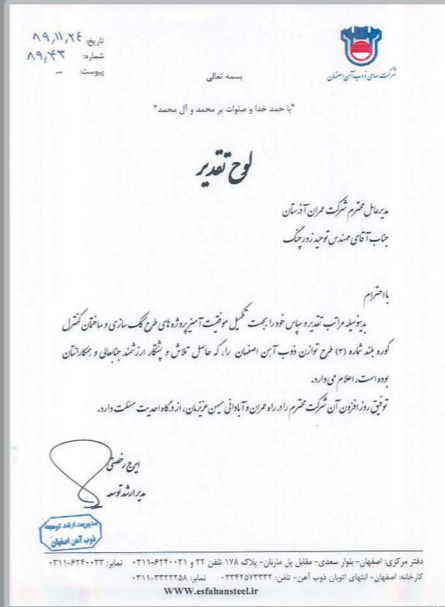 تاریخ: ۸۹,۱۱,۲۴
شماره: ۸۹,۴۳
پیوست: –
شرکت سهامی ذوب آهن اصفهان
بسمه تعالی
"با حمد خدا و صلوات بر محمد و آل محمد"
لوح تقدیر
مدیرعامل محترم شرکت عمران آذرستان
جناب آقای مهندس توحید زورچنگ
بااحترام
بدینوسیله مراتب تقدیر و سپاس خود را بجهت تکمیل موفقیت آمیز پروژه های طرح کک سازی و ساختمان کنترل
کوره بلند شماره (۳) طرح توازن ذوب آهن اصفهان را، که حاصل تلاش و پشتکار ارزشمند جنابعالی و همکارانتان
بوده است، اعلام می دارد.
توفیق روز افزون آن شرکت محترم را در راه عمران و آبادانی میهن عزیزمان، از درگاه احدیت مسئلت دارد.
ایرج رخصتی
مدیر ارشد توسعه
مدیریت ارشد توسعه
ذوب آهن اصفهان
دفتر مرکزی: اصفهان- بلوار سعدی- مقابل پل مارنان- پلاک ۱۷۸ تلفن ۳۲ و ۶۲۴۰۰۳۱-۰۳۱۱ نمابر: ۶۲۴۰۰۳۳-۰۳۱۱
کارخانه: اصفهان- انتهای اتوبان ذوب آهن- تلفن: ۰۳۳۴۲۵۷۳۳۳۲ نمابر: ۳۳۲۲۲۵۸-۰۳۱۱
WWW.esfahansteel.ir